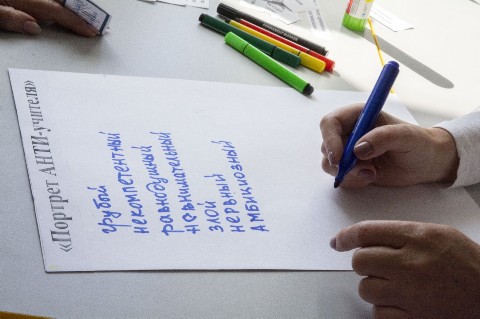 «Портрет АНТИ-учителя»
грубый
некомпетентный
равнодушный
невнимательный
злой
нервный
амбициозный